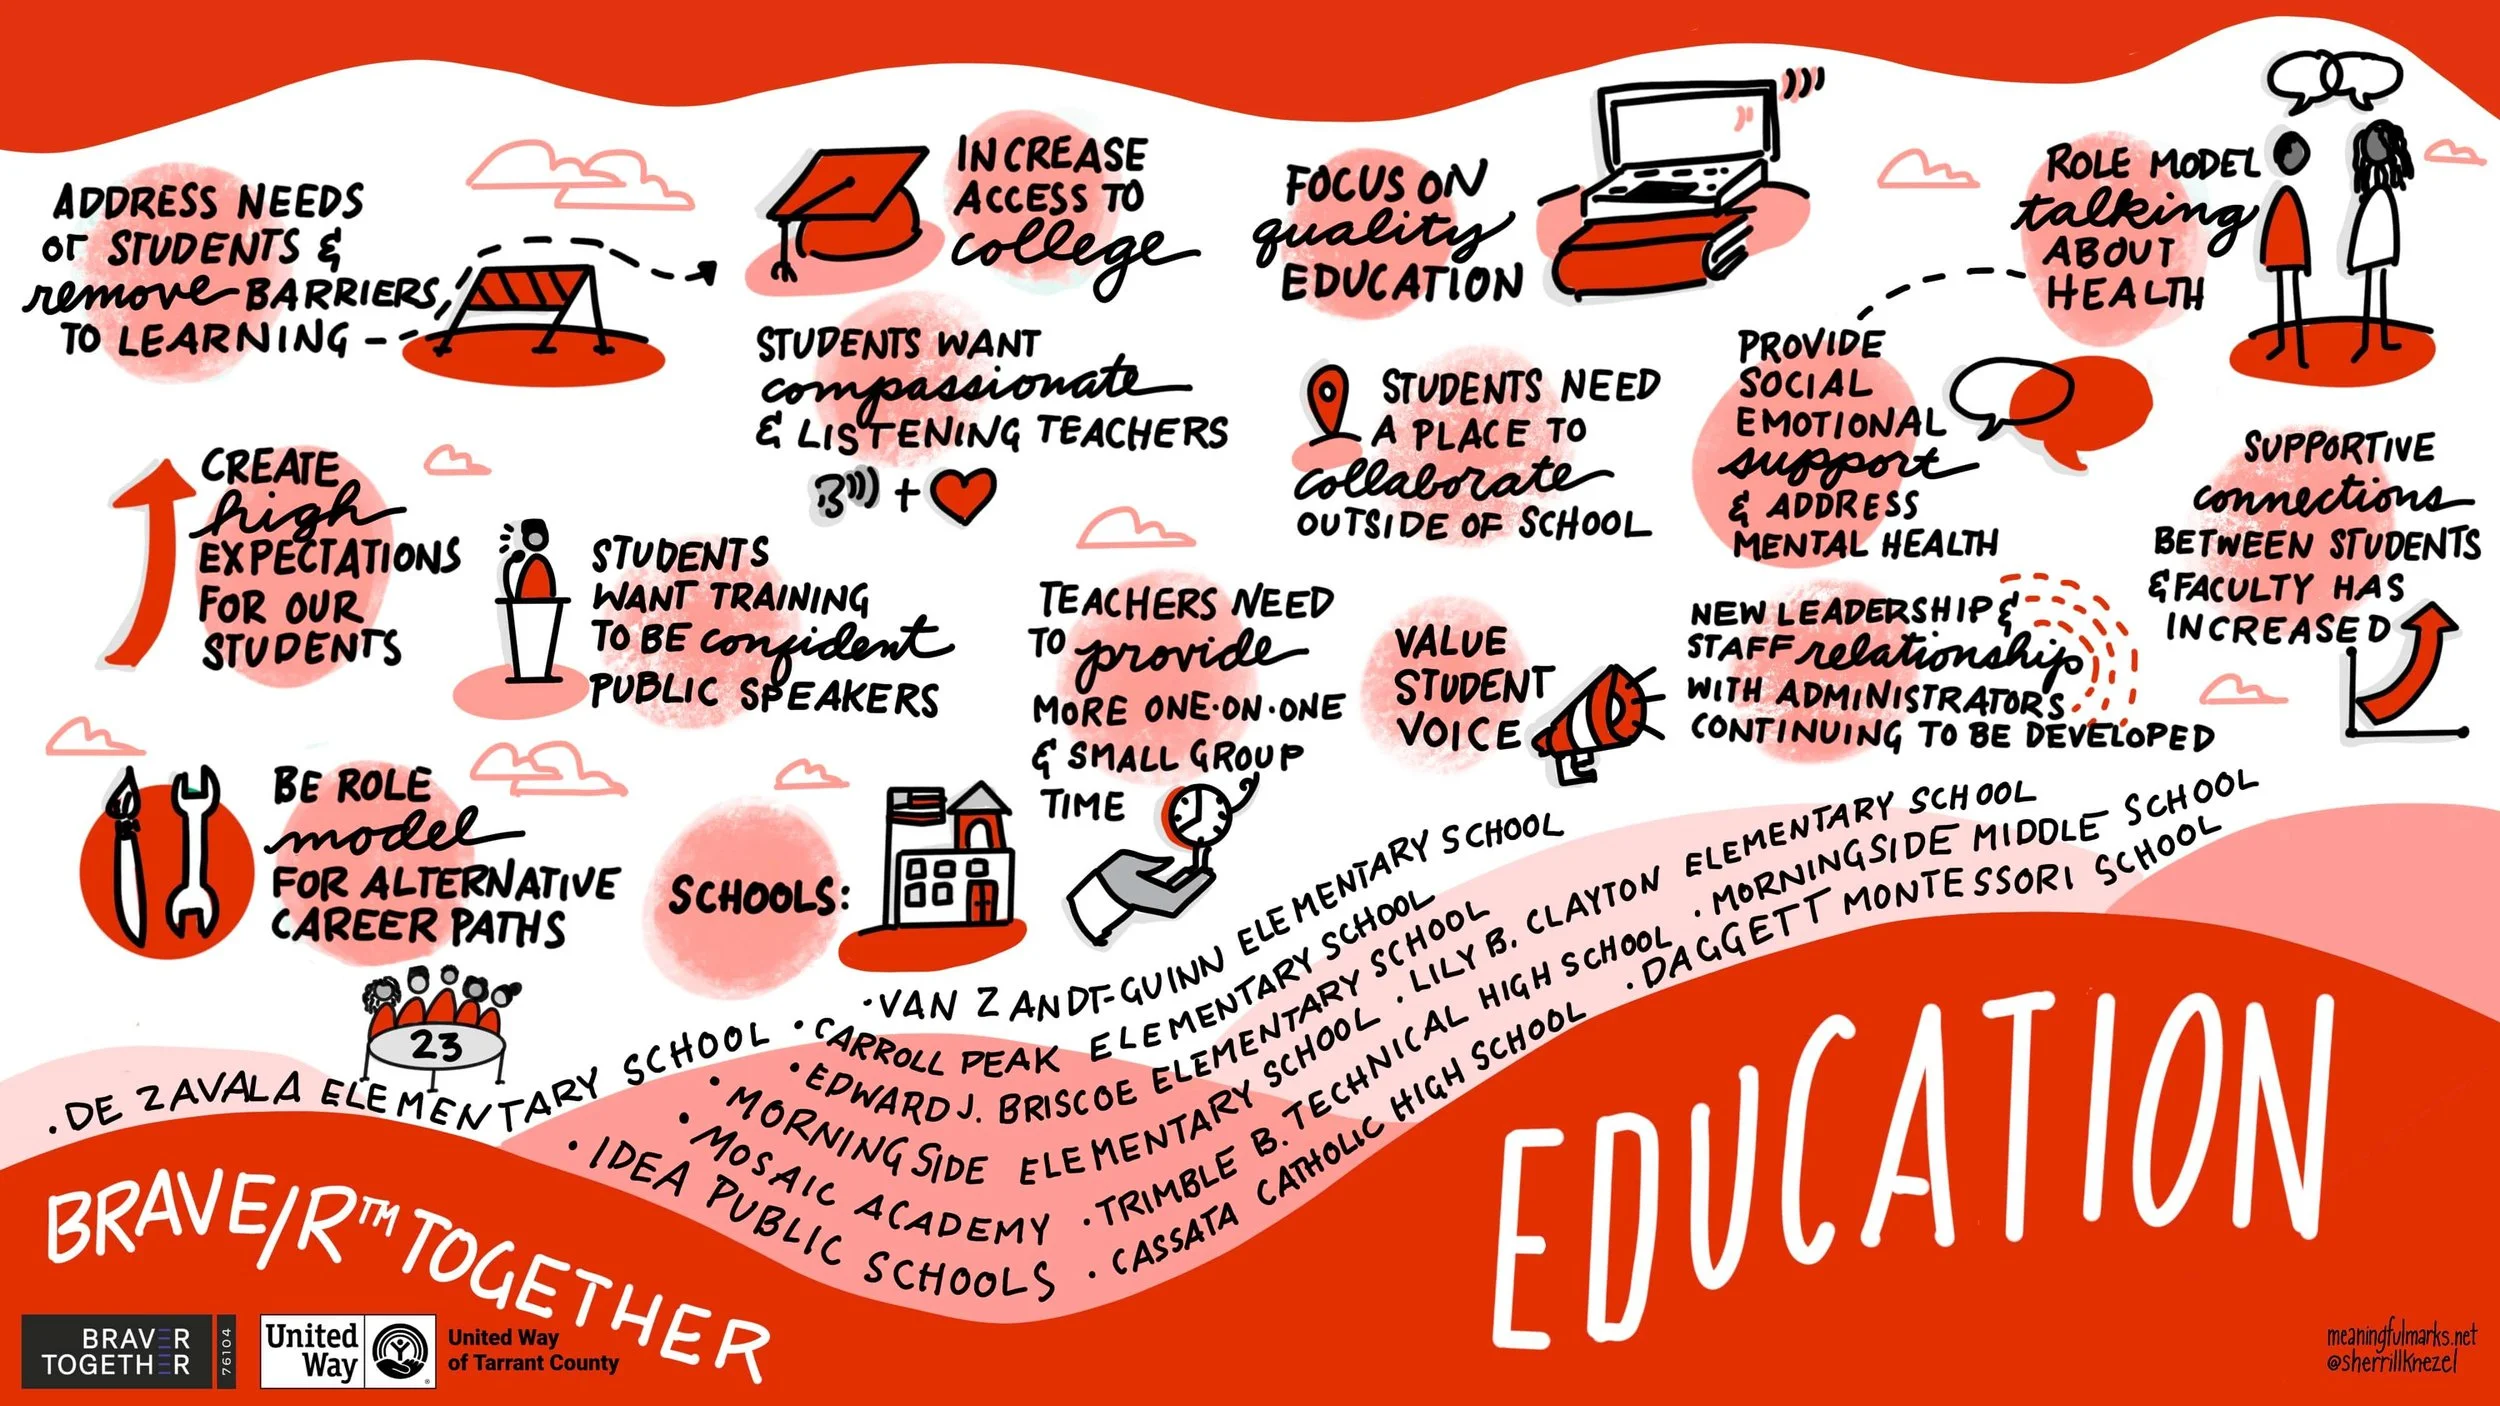 ADDRESS NEEDS
OF STUDENTS &
remove BARRIERS
TO LEARNING
INCREASE
ACCESS TO
college
FOCUS ON
quality
EDUCATION
ROLE MODEL
talking
ABOUT
HEALTH
STUDENTS WANT
compassionate
& LISTENING TEACHERS
+
STUDENTS NEED
A PLACE TO
collaborate
OUTSIDE OF SCHOOL
PROVIDE
SOCIAL
EMOTIONAL
support
& ADDRESS
MENTAL HEALTH
SUPPORTIVE
connections
BETWEEN STUDENTS
& FACULTY HAS
INCREASED
CREATE
high
EXPECTATIONS
FOR OUR
STUDENTS
STUDENTS
WANT TRAINING
TO BE confident
PUBLIC SPEAKERS
TEACHERS NEED
TO provide
MORE ONE-ON-ONE
& SMALL GROUP
TIME
VALUE
STUDENT
VOICE
NEW LEADERSHIP &
STAFF relationship
WITH ADMINISTRATORS
CONTINUING TO BE DEVELOPED
BE ROLE
model
FOR ALTERNATIVE
CAREER PATHS
23
SCHOOLS:
• DE ZAVALA ELEMENTARY SCHOOL
• VAN ZANDT-GUINN ELEMENTARY SCHOOL
• CARROLL PEAK ELEMENTARY SCHOOL
• EDWARD J. BRISCOE ELEMENTARY SCHOOL
• MORNINGSIDE ELEMENTARY SCHOOL
• MOSAIC ACADEMY
• IDEA PUBLIC SCHOOLS
• LILY B. CLAYTON ELEMENTARY SCHOOL
• TRIMBLE B. TECHNICAL HIGH SCHOOL
• CASSATA CATHOLIC HIGH SCHOOL
• MORNINGSIDE MIDDLE SCHOOL
• DAGGETT MONTESSORI SCHOOL
BRAVE/R™ TOGETHER
EDUCATION
BRAVER
TOGETHER
76104
United
Way
United Way
of Tarrant County
meaningfulmarks.net
@sherrillknezel